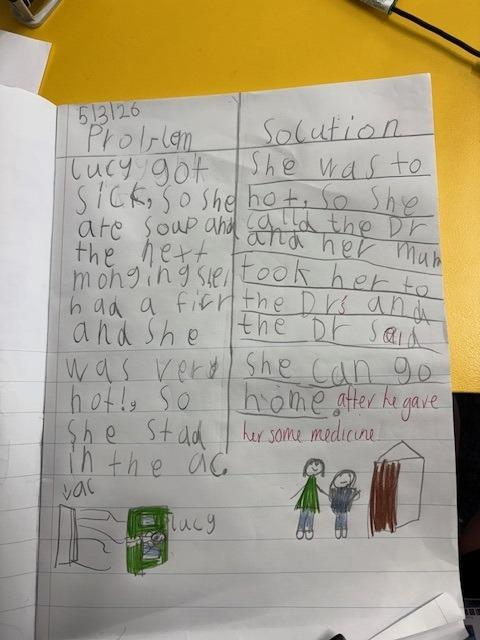 5/3/26
Problem
lucy got
sick, so she
ate soup and
the next
monging she
had a fierr
and she
was very
hot!, so
she stad
in the ac.
ac
lucy
Solution
She was to
hot, so she
calld the Dr
and her mum
took her to
the Drs and
the Dr said
she can go
home. after he gave
her some medicine.